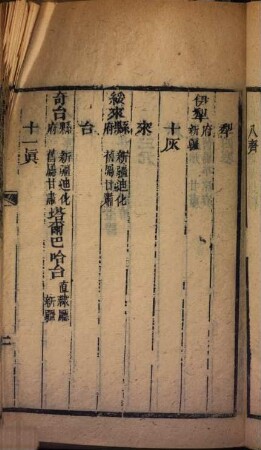 八齊
犂
伊犂府新疆
十灰
來
綏來縣新疆迪化府舊屬甘肅
台
奇台縣新疆迪化府舊屬甘肅 塔爾巴哈台直隸廳新疆
十一眞